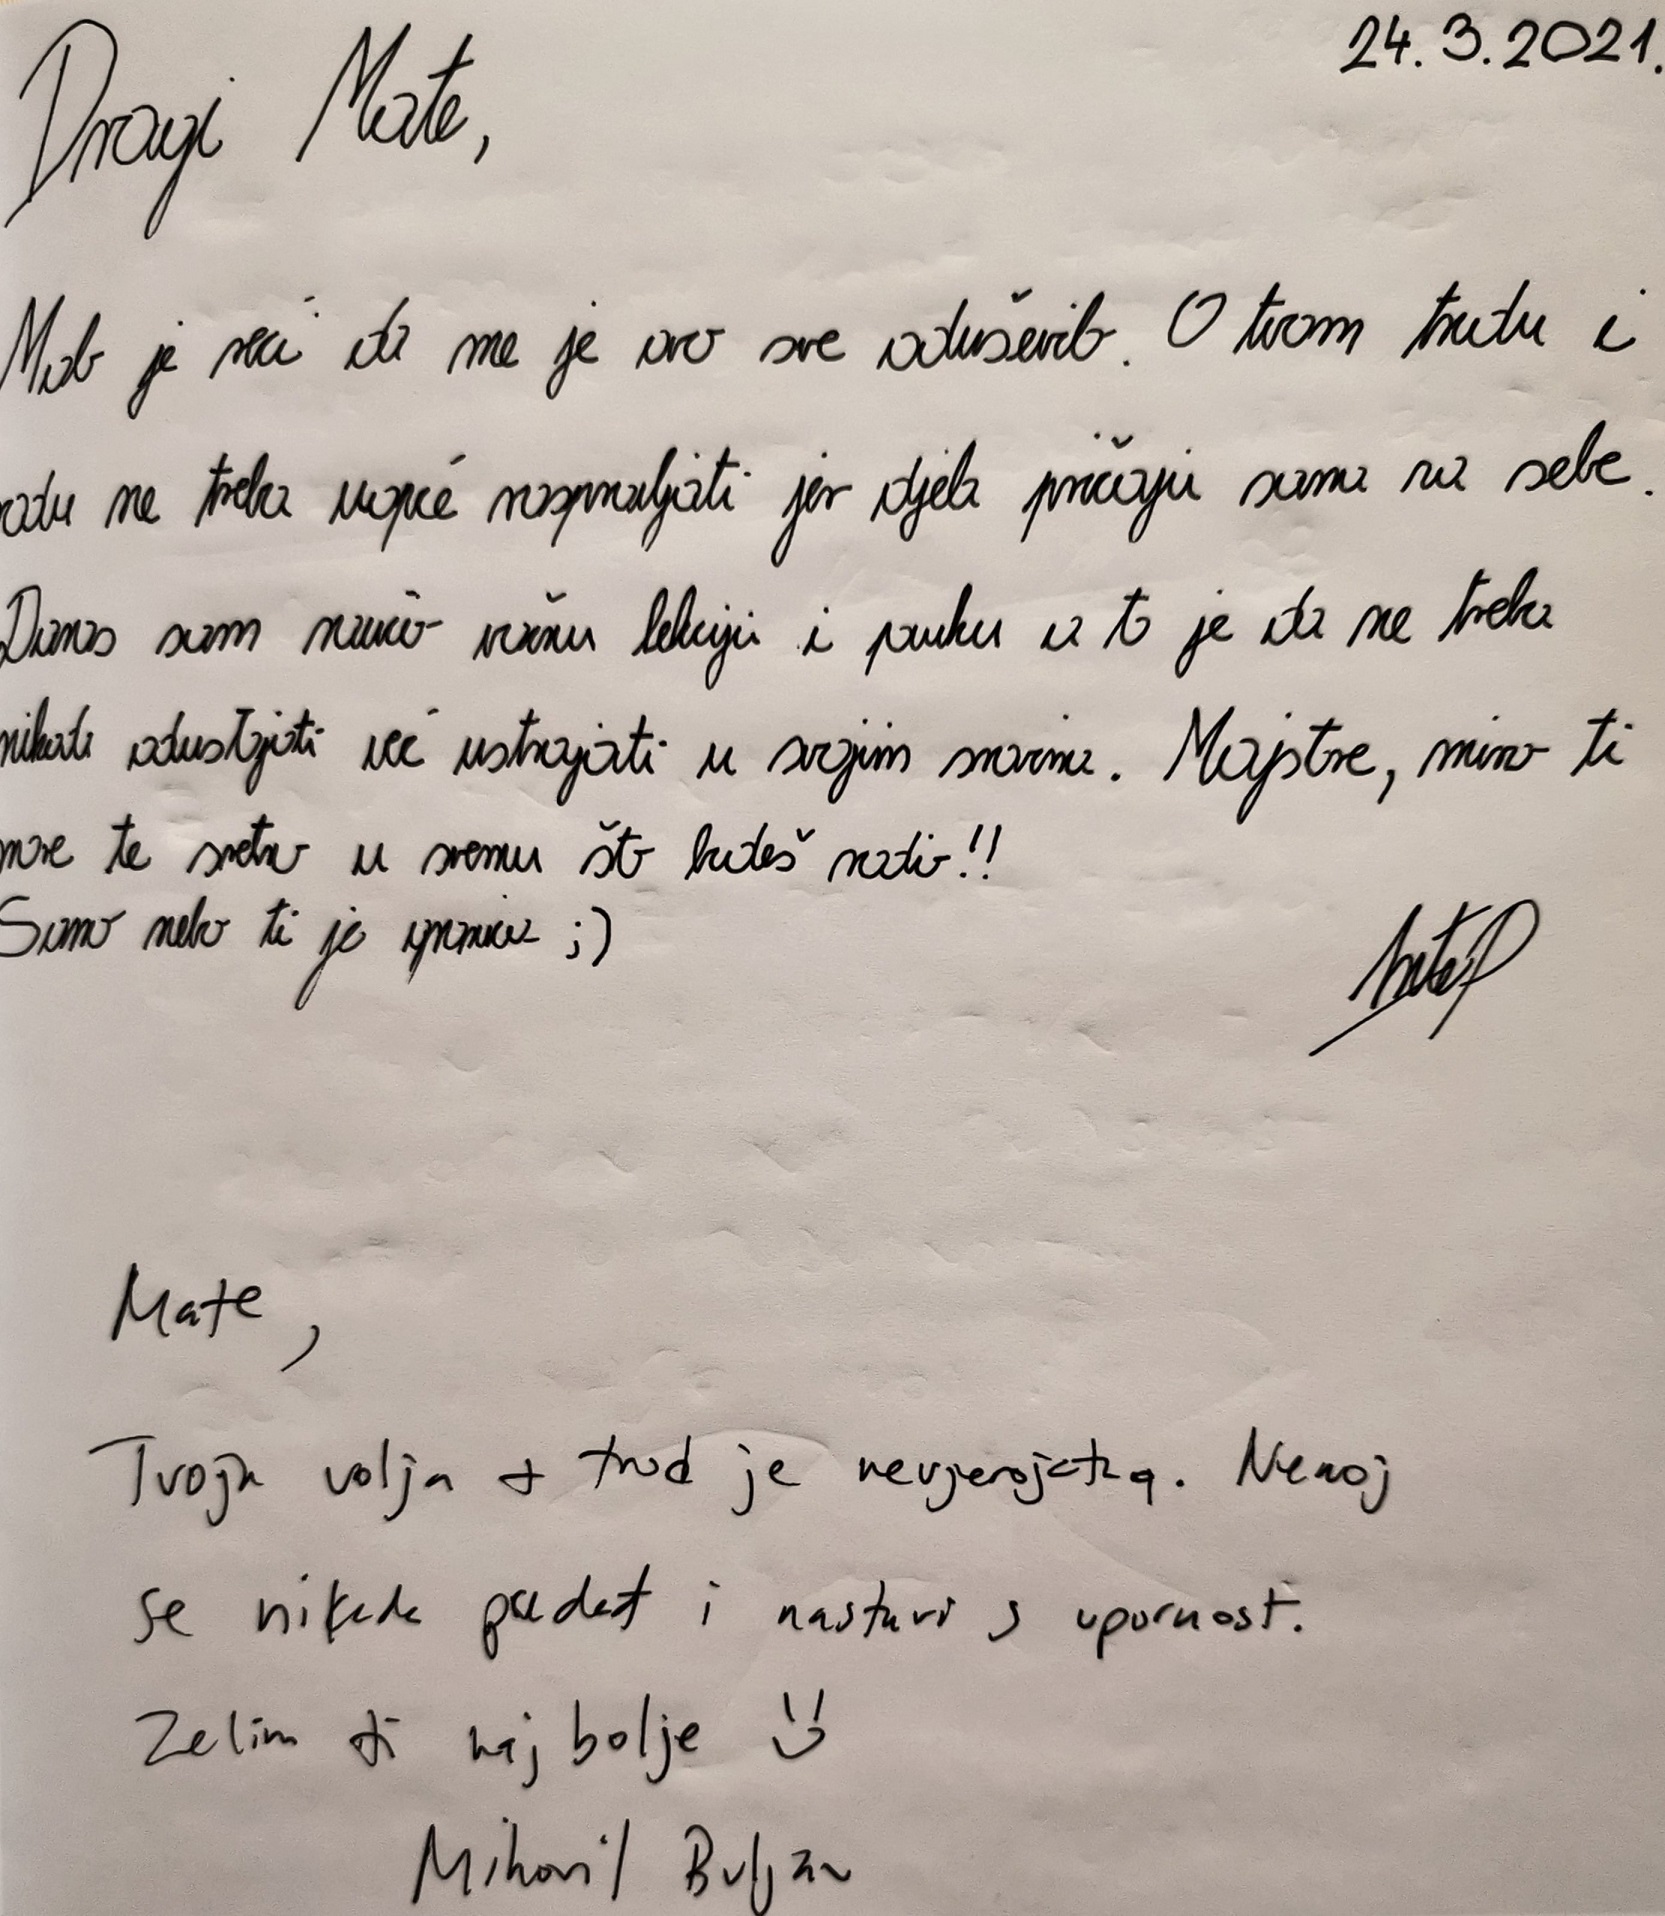 24.3.2021.
Dragi Mate,
Malo je reći da me je ovo sve oduševilo. O tvom trudu i
radu ne treba uopće raspravljati jer djela pričaju sama za sebe.
Danas sam naučio važnu lekciju i pouku a to je da ne treba
nikada odustajati već ustrajati u svojim snovima. Majstre, mirno ti
more te sretno u svemu što budeš radio!!
Samo nebo ti je granica ;)
Ante P
Mate,
Tvoja volja + trud je nevjerojatna. Nemoj
se nikada predat i nastavi s upornost.
Zelim ti naj bolje
Mihovil Buljan